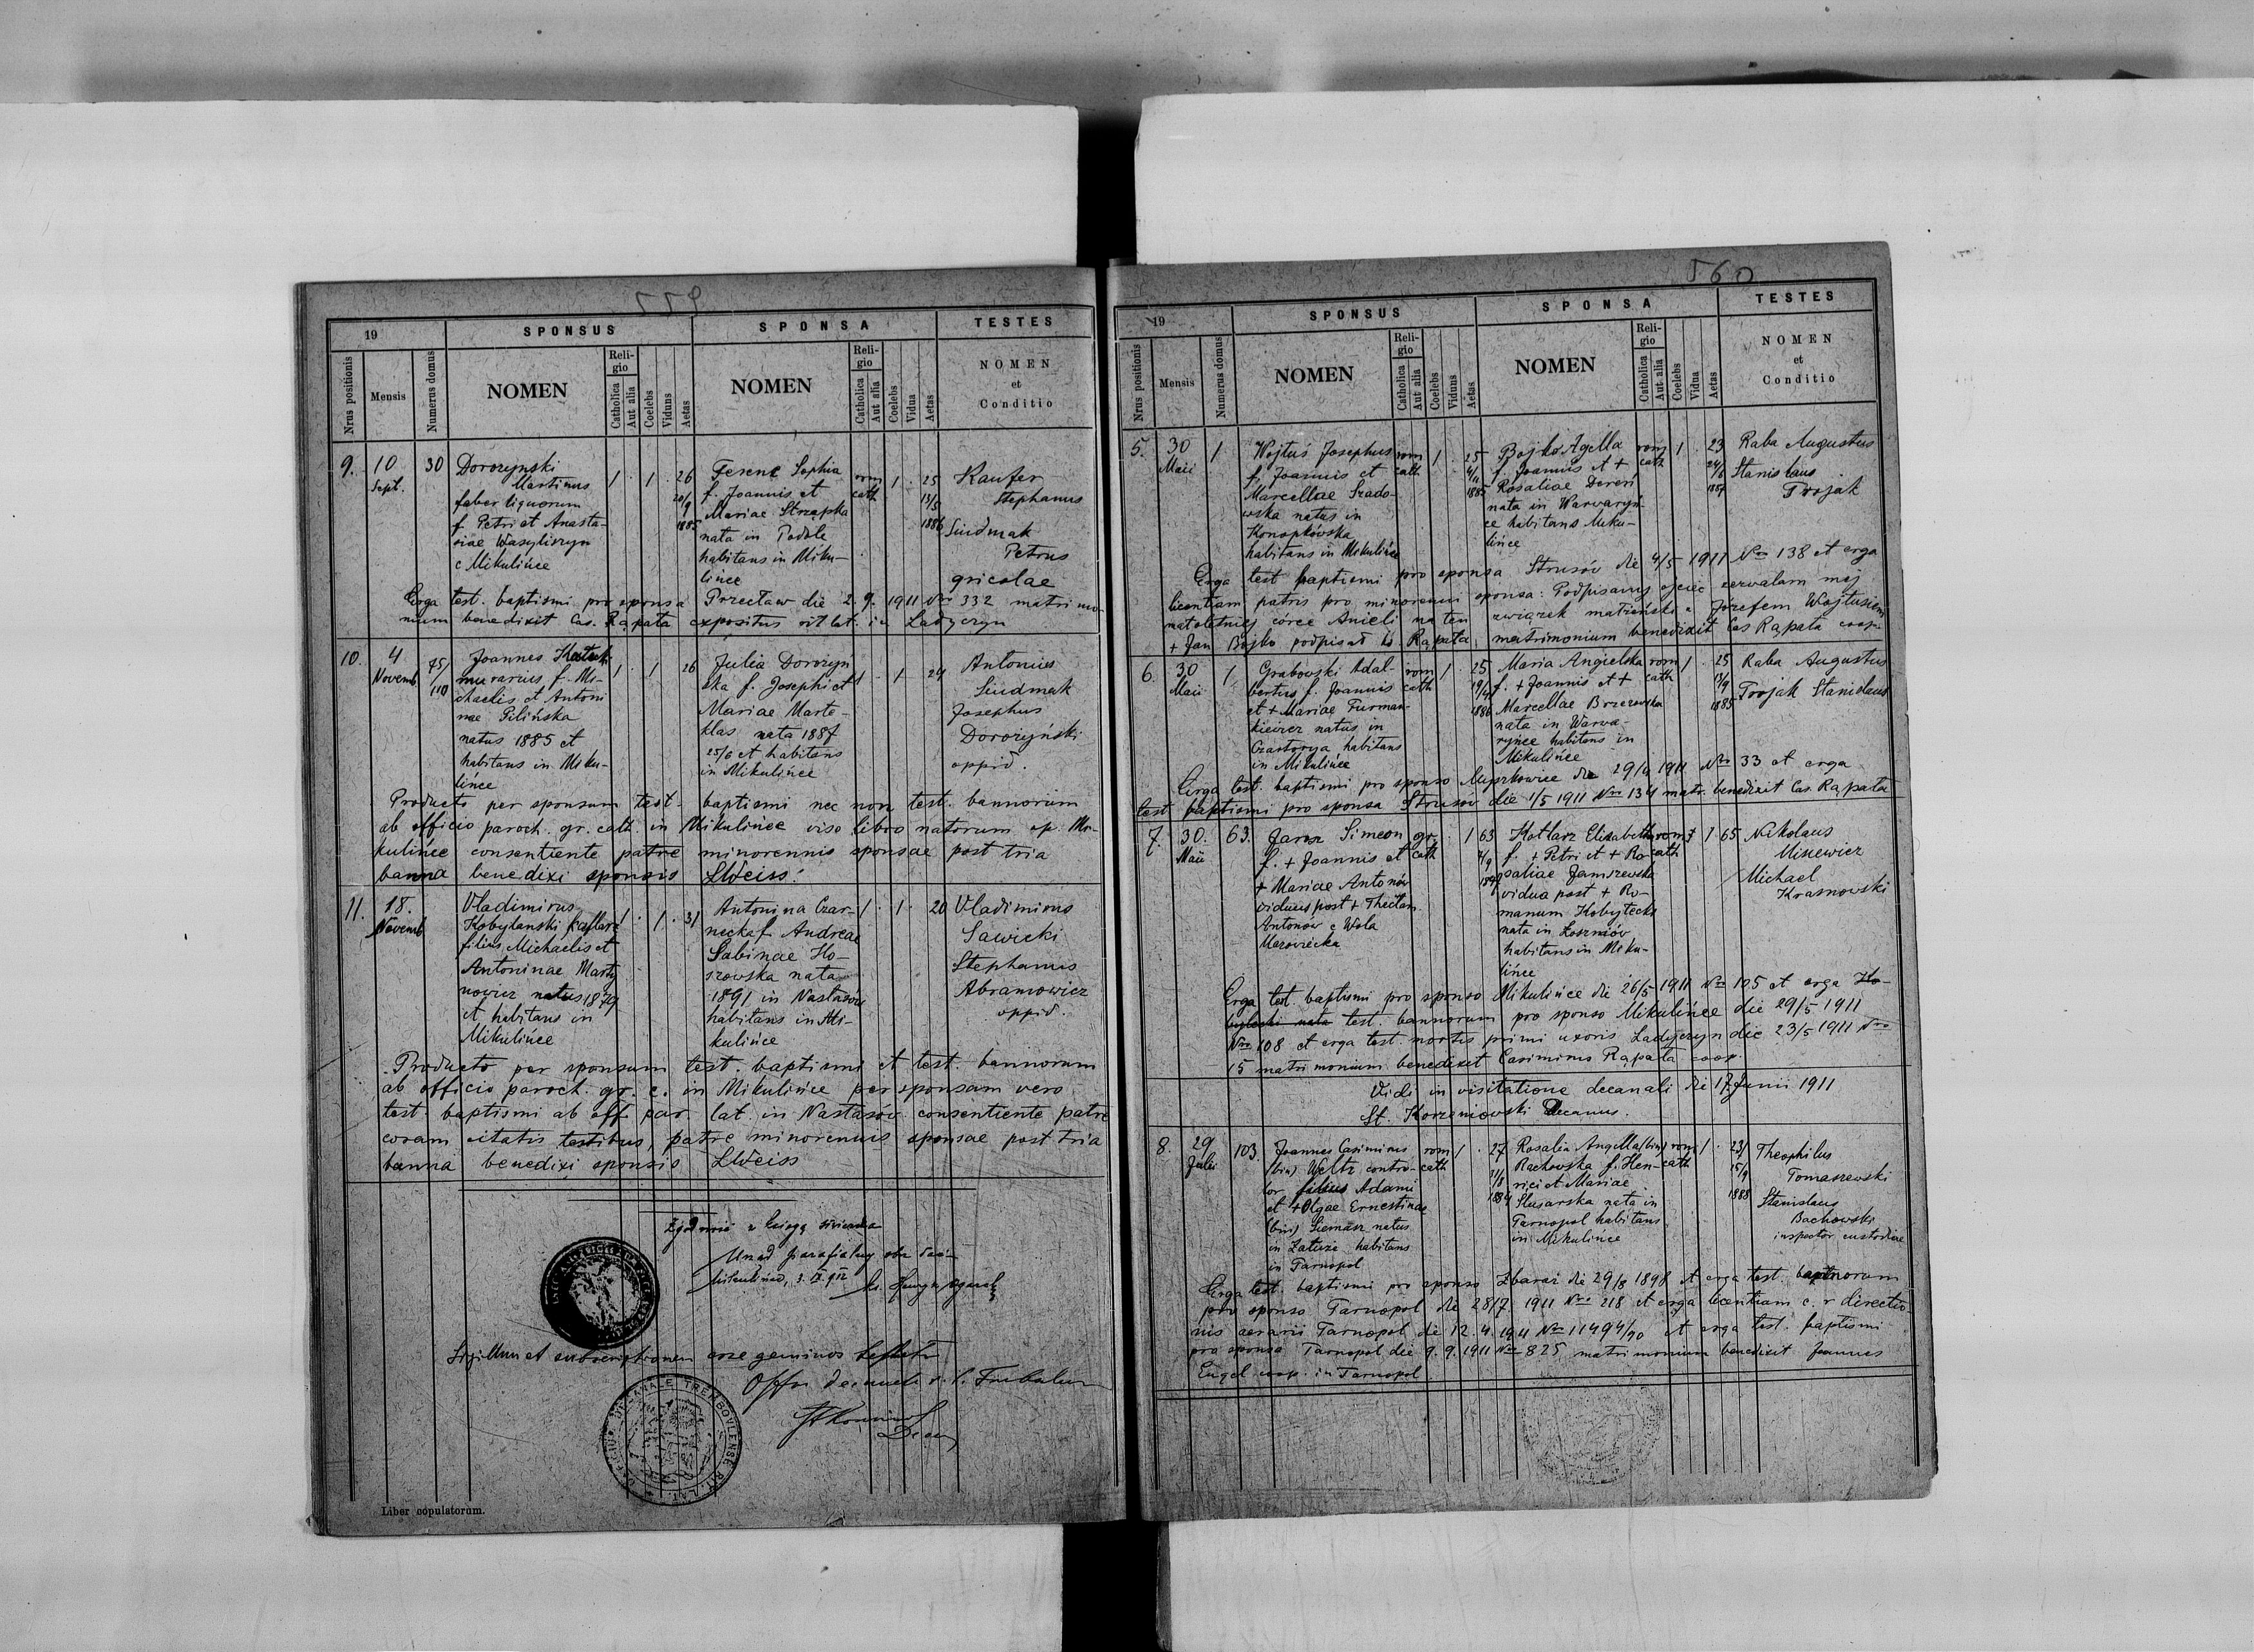 559
19
SPONSUS
SPONSA
TESTES
Nrus positionis
Mensis
Numerus domus
NOMEN
Religio
Catholica
Aut alia
Coelebs
Viduus
Aetas
NOMEN
Religio
Catholica
Aut alia
Coelebs
Vidua
Aetas
NOMEN
et
Conditio
9.
10
Sept.
30
Dorożynski
Martinus
faber lignorum
f. Petri et Anasta-
siae Wasyliszyn
e Mikulińce
1 . 1 . 26
20/9
1885
Ferenc Sophia
f. Joannis et
Mariae Strząpka
nata in Podole
habitans in Miku-
lińce
rom
cath
1 . 25
13/5
1886
Kaufer
Stephanus
Sindmak
Petrus
gricolae
Erga test. baptismi pro sponsa Przecław die 2. 9. 1911 Nro 332 matrimo-
nium benedixit Cas. Rąpata expositus rit lat. in Ładyczyn
10.
4
Novemb
75/
110
Joannes
murarius f. Mi-
chaelis et Antoni
nae Pilińska
natus 1885 et
habitans in Miku-
lińce
1 . 1 26
Julia Dorożyń
ska f. Josephi et
Mariae Marte-
klas nata 1887
et habitans
in Mikulińce
1 . 1 . 24
Antonius
Sindmak
Josephus
Dorożyński
oppid.
Producto per sponsum test. baptismi nec non test. bannorum
ab officio paroch. gr. cath. in Mikulińce viso libro natorum op. Mi-
kulińce consentiente patre minorennis sponsae post tria
banna benedixi sponsis LWeiss.
11.
18.
Novemb
Vladimirus
Kobylanski
filius Michaelis et
Antoninae Marty
nowicz natus 1879
et habitans in
Mikulińce
1 . 1 . 31
Antonina Czar-
necka f. Andreae
Sabinae Ko-
szowska nata
1891 in Nastasów
habitans in Mi-
kulińce
1 . 1 . 20
Vladimirus
Sawicki
Stephanus
Abramowicz
oppid.
Producto per sponsum test. baptismi et test. bannorum
ab officio paroch. gr. c. in Mikulińce per sponsam vero
test. baptismi ab off. par. lat. in Nastasów consentiente patre
coram citatis testibus, patre minorennis sponsae post tria
banna benedixi sponsis LWeiss
Zgodność z księgą
Urząd parafialny obr. łac.
3. IX. 912
Sigillum et subscriptionem esse genuinos
OFFICIUM DECANALE TREMBOVLENSE RIT. LAT.
Liber copulatorum.
560
19
SPONSUS
SPONSA
TESTES
Nrus positionis
Mensis
Numerus domus
NOMEN
Religio
Catholica
Aut alia
Coelebs
Viduus
Aetas
NOMEN
Religio
Catholica
Aut alia
Coelebs
Vidua
Aetas
NOMEN
et
Conditio
5.
30
Maii
1
Wojtuś Josephus
f. Joannis et
Marcellae Szado-
wska natus in
Konopkówska
habitans in Mikulińce
rom
cath.
1 . 25
4/11
1885
Bojko Agella
f. Joannis et +
Rosaliae Dereń
nata in Warwaryń-
ce habitans Miku-
lińce
rom
cath
1 . 23
24/6
1887
Raba Augustus
Stanislaus
Trojak
Erga test baptismi pro sponsa Strusów die 4/5 1911 Nro 138 et erga
licentiam patris pro minorenni sponsa: Podpisany ojciec zezwalam mej
małoletniej córce Anieli na ten związek małżeński z Józefem Wojtusiem
+ Jan Bojko podpisał ks Rąpata, matrimonium benedixit Cas Rąpata coop.
6.
30
Maii
1
Grabowski Adal-
bertus f. Joannis
et + Mariae Furman-
kiewicz natus in
Czastorya habitans
in Mikulińce
rom
cath
1 . 25
19/4
1886
Maria Angielska
f. + Joannis et +
Marcellae Brzezowska
nata in Warwa-
ryńce habitans in
Mikulińce
rom
cath
1 . 25
13/9
1885
Raba Augustus
Trojak Stanislaus
Erga test. baptismi pro sponso Myszkowice die 29/4 1911 Nro 33 et erga
test baptismi pro sponsa Strusów die 1/5 1911 Nro 134 matr. benedixit Cas. Rąpata
7.
30.
Maii
63.
Jarosz Simeon
f. + Joannis et
+ Mariae Antonów
viduus post + Theclam
Antonów e Wola
Mazowiecka
gr.
cath
1 63
Kotlarz Elisabetha
f. + Petri et + Ro
saliae Janiszewska
vidua post + Ro-
manum Kobylecki
nata in Łoszniów
habitans in Miku-
lińce
rom
cath
1 65
Nikolaus
Misiewicz
Michael
Krasnowski
Erga test. baptismi pro sponso Mikulińce die 26/5 1911 Nro 105 et erga Ko-
byleski nata test. bannorum pro sponso Mikulińce die 29/5 1911
Nro 108 et erga test. mortis primi uxoris Ladyczyn die 23/5 1911 Nro
15 matrimonium benedixit Casimirus Rąpata coop.
Vidi in visitatione decanali die 17 Junii 1911
St. Korzeniowski Decanus.
8.
29
Julii
103.
Joannes Casimirus
(bin) Weltz contro-
lor filius Adami
et + Olgae Ernestinae
(bin) Siemasz natus
in Załuże habitans
in Tarnopol
rom
cath
1 . 27
31/8
1884
Rosalia Angella (bin)
Rachowska f. Hen-
rici et Mariae
Slusarska nata in
Tarnopol habitans
in Mikulince
rom
cath
1 . 23/
15/9
1888
Theophilus
Tomaszewski
Stanislaus
Bachowski
inspector custodiae
Erga test. baptismi pro sponso Zbaraż die 29/8 1898 et erga test. bannorum
pro sponso Tarnopol die 28/7 1911 Nro 218 et erga licentiam c. r directio-
nis aerarii Tarnopol die 12. 4. 1911 Nro 11494/90 et erga test. baptismi
pro sponsa Tarnopol die 9. 9. 1911 Nro 825 matrimonium benedixit Joannes
Engel coop. in Tarnopol